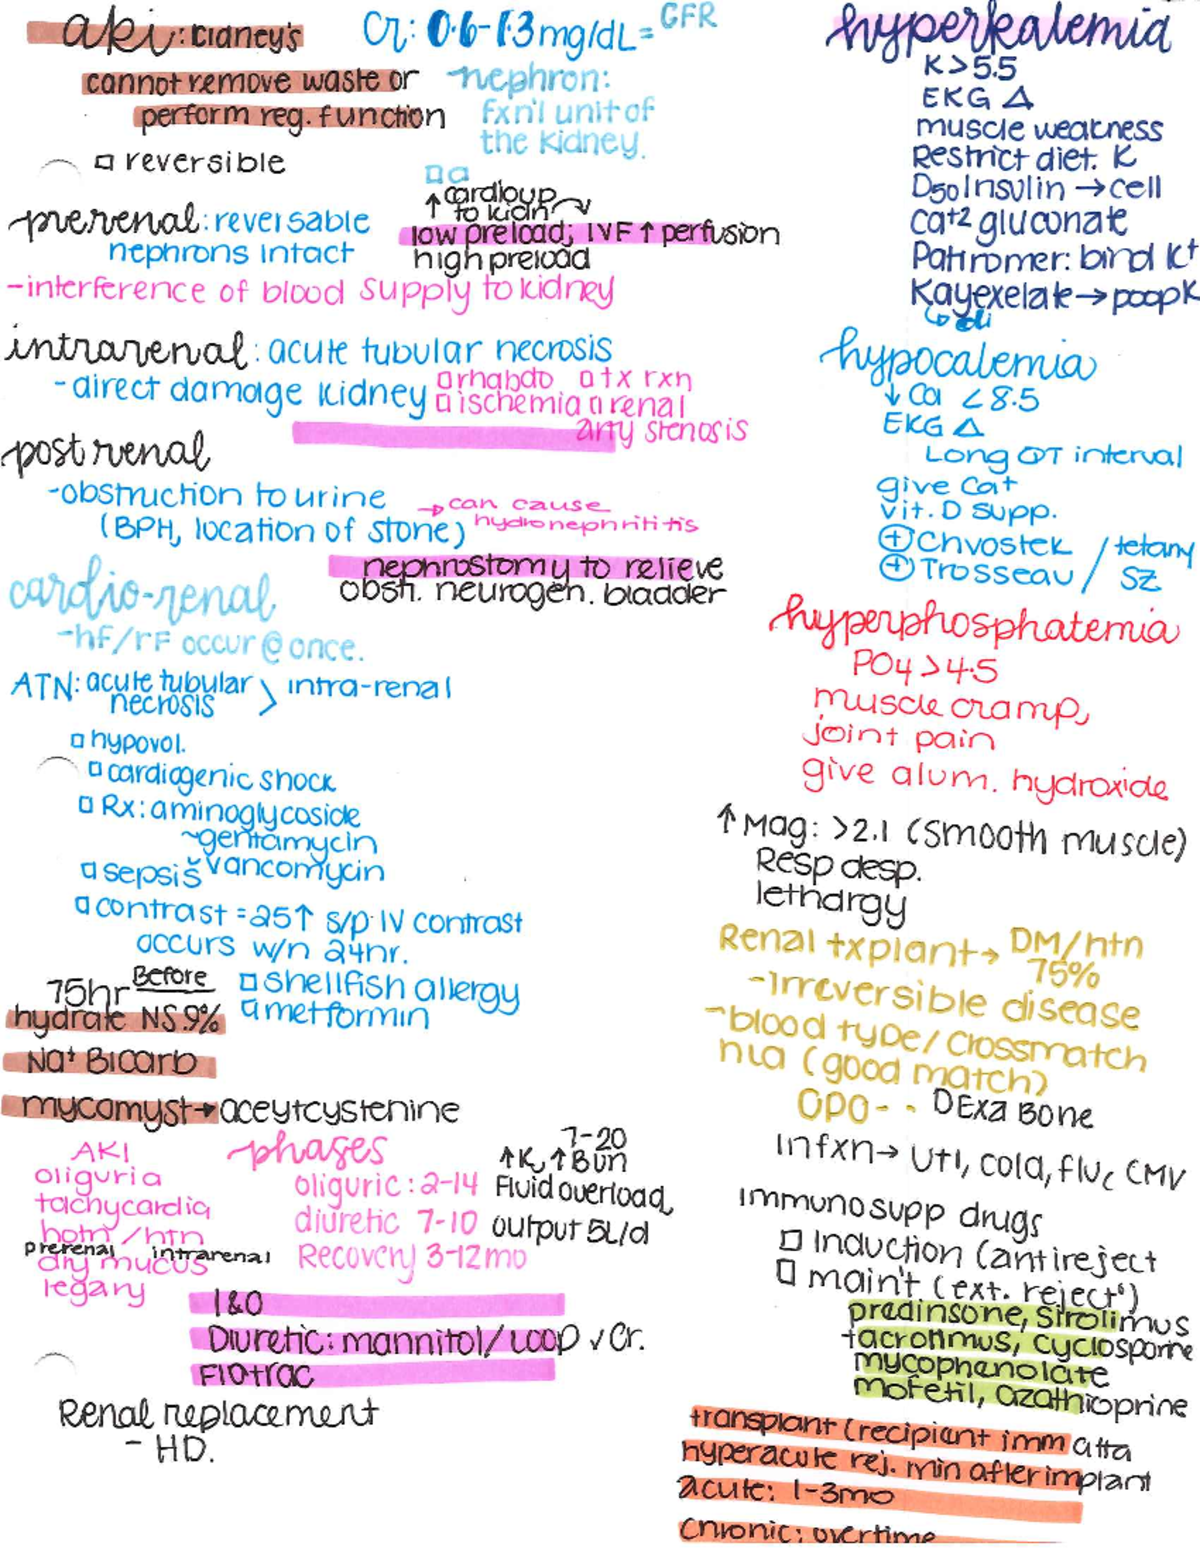 aki: Cidney's
cannot remove waste or
perform reg. function
□ reversible
Cr: 0.6-1.3 mg/dL = GFR
nephron:
fxn'l unit of
the kidney.
□ a
↑ cardio up
to kidn
low preload; IVF ↑ perfusion
high preload
prerenal: reversable
nephrons intact
-interference of blood supply to kidney
intrarenal: acute tubular necrosis
-direct damage kidney
□ rhabdo □ tx rxn
□ ischemia □ renal
arty stenosis
post renal
-obstruction to urine
(BPH, location of stone)
→ can cause
hydronephrititis
nephrostomy to relieve
obstr. neurogen. bladder
cardio-renal
-hf/rF occur @ once.
ATN: acute tubular > intra-renal
necrosis
□ hypovol.
□ cardiogenic shock
□ Rx: aminoglycoside
~gentamycin
vancomycin
□ sepsis
□ contrast = 25↑ s/p IV contrast
occurs w/n 24hr.
75hr Before
hydrate NS.9%
□ shellfish allergy
□ metformin
Na+ Bicarb
mycomyst → aceytcystenine
AKI
oliguria
tachycardia
hotn / htn
prerenal intrarenal
dry mucus
legary
phases
oliguric: 2-14
diuretic 7-10
Recovery 3-12mo
7-20
↑K, ↑Bun
Fluid overload,
output 5L/d
I&O
Diuretic: mannitol/Loop ✓ Cr.
Flotrac
Renal replacement
- HD.
hyperkalemia
K > 5.5
EKG Δ
muscle weakness
Restrict diet. K
D50 Insulin → cell
Ca+2 gluconate
Patiromer: bind K+
Kayexelate → poop K
hypocalemia
↓ Ca < 8.5
EKG Δ
Long QT interval
give Ca+
vit. D supp.
⊕ Chvostek / tetany
⊕ Trosseau / SZ
hyperphosphatemia
PO4 > 4.5
muscle cramp,
joint pain
give alum. hydroxide
↑ Mag: >2.1 (smooth muscle)
Resp desp.
lethargy
Renal txplant → DM/htn
75%
-Irreversible disease
-blood type/crossmatch
hla (good match)
OPO - - DExa Bone
Infxn → UTI, cold, flu, CMV
immunosupp drugs
□ Induction (antireject
□ main't (ext. reject')
predinsone, Sirolimus
tacrolimus, cyclosporine
mycophenolate
mofetil, azathioprine
transplant (recipient imm atta
hyperacute rej. min after implant
acute: 1-3mo
Chronic: overtime